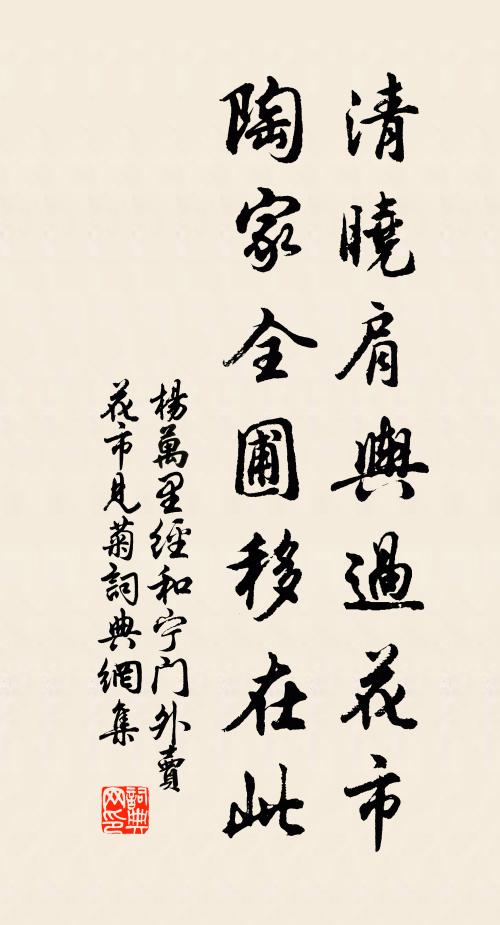 清曉肩輿過花市
陶家全圃移在此
楊萬里經和宁门外賣
花市見菊詞典網集
詞典
网印